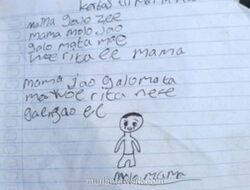 mama galo zee
mama molo jao
galo mata moe
noe rita ee mama
mama jao galo mata
ma noe rita nese
ee
molo mama